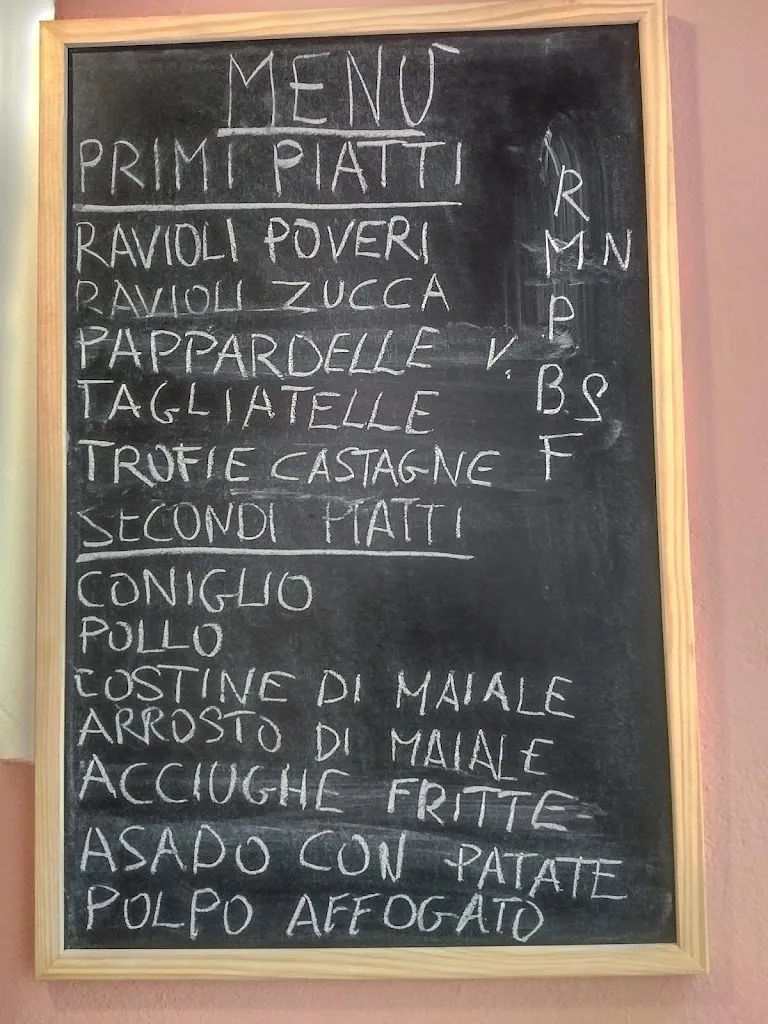 MENÙ
PRIMI PIATTI
R
RAVIOLI POVERI M N
RAVIOLI ZUCCA P
PAPPARDELLE V.
TAGLIATELLE B S
TROFIE CASTAGNE F
SECONDI PIATTI
CONIGLIO
POLLO
COSTINE DI MAIALE
ARROSTO DI MAIALE
ACCIUGHE FRITTE
ASADO CON PATATE
POLPO AFFOGATO